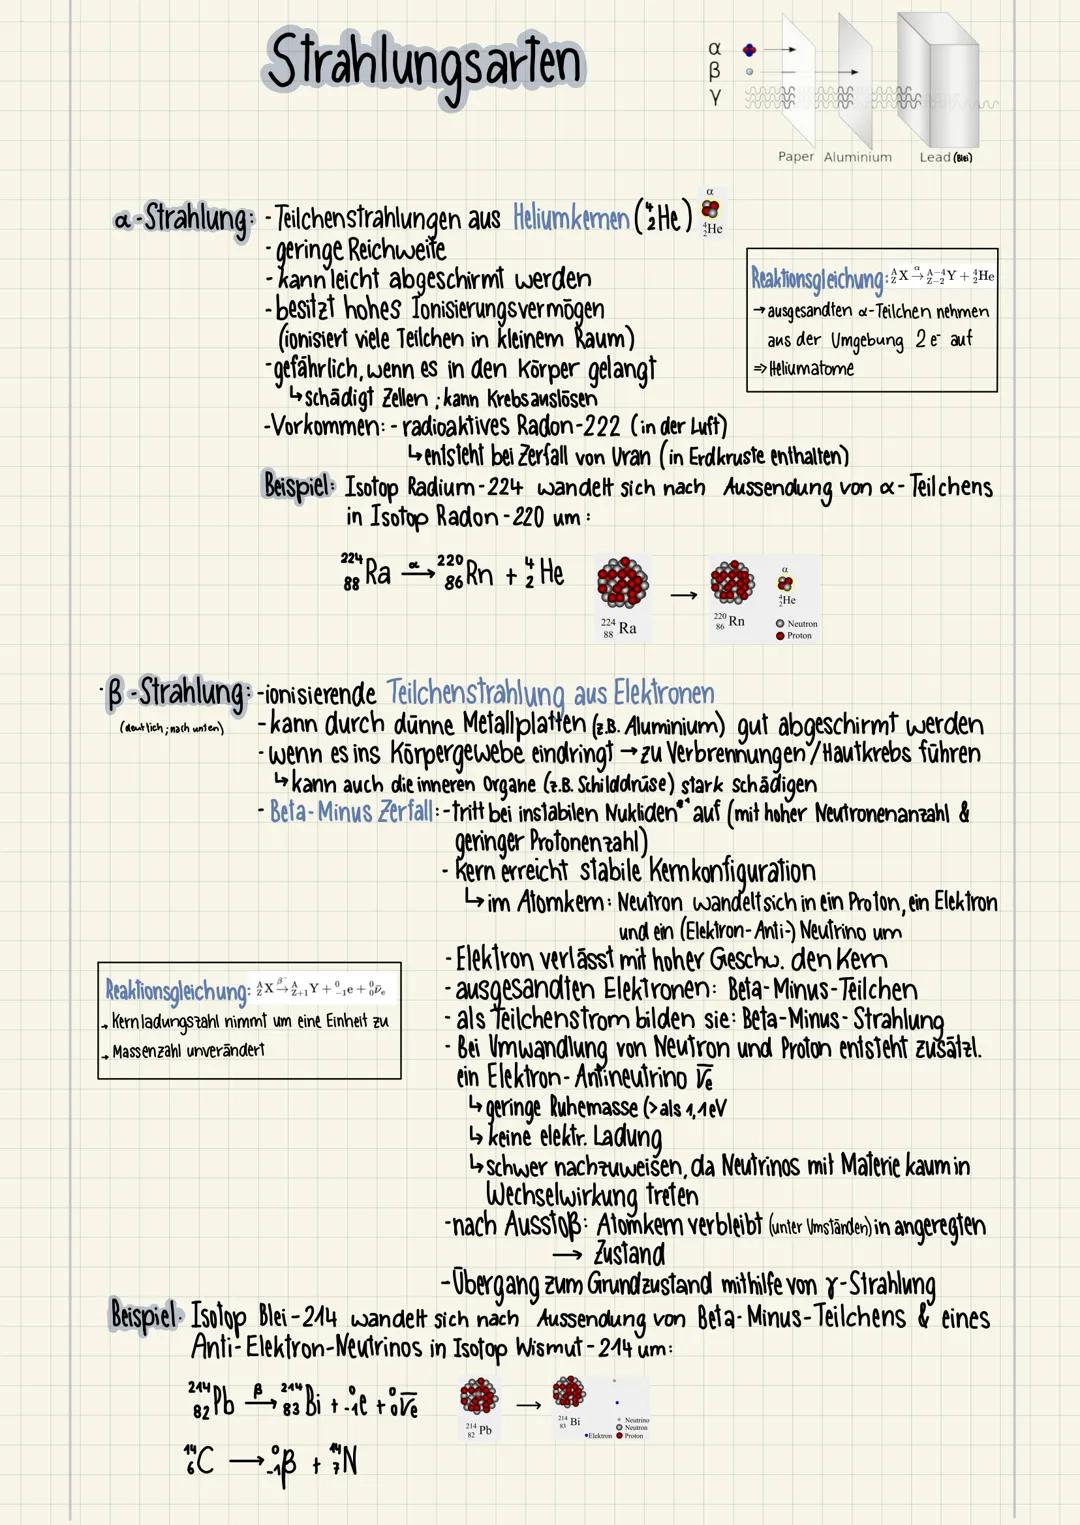 Strahlungsarten
α
β
γ
Paper Aluminium Lead (Blei)
α-Strahlung: - Teilchenstrahlungen aus Heliumkernen (⁴₂He)
α
⁴₂He
- geringe Reichweite
- kann leicht abgeschirmt werden
- besitzt hohes Ionisierungsvermögen
(ionisiert viele Teilchen in kleinem Raum)
- gefährlich, wenn es in den Körper gelangt
↳ schädigt Zellen ; kann Krebs auslösen
- Vorkommen: - radioaktives Radon-222 (in der Luft)
↳ entsteht bei Zerfall von Uran (in Erdkruste enthalten)
Reaktionsgleichung: ᴬ_Z X →^α ᴬ⁻⁴_Z₋₂ Y + ⁴₂He
→ ausgesandten α-Teilchen nehmen
aus der Umgebung 2 e⁻ auf
⇒ Heliumatome
Beispiel: Isotop Radium-224 wandelt sich nach Aussendung von α-Teilchens
in Isotop Radon-220 um:
²²⁴₈₈Ra →^α ²²⁰₈₆Rn + ⁴₂He
²²⁴₈₈Ra → ²²⁰₈₆Rn
α
⁴₂He
Neutron
Proton
· β-Strahlung: - ionisierende Teilchenstrahlung aus Elektronen
(deutlich ; nach unten)
- kann durch dünne Metallplatten (z.B. Aluminium) gut abgeschirmt werden
- wenn es ins Körpergewebe eindringt → zu Verbrennungen/Hautkrebs führen
↳ kann auch die inneren Organe (z.B. Schilddrüse) stark schädigen
- Beta-Minus Zerfall: - tritt bei instabilen Nukliden** auf (mit hoher Neutronenanzahl &
geringer Protonenzahl)
- Kern erreicht stabile Kernkonfiguration
↳ im Atomkern: Neutron wandelt sich in ein Proton, ein Elektron
und ein (Elektron-Anti-) Neutrino um
- Elektron verlässt mit hoher Geschw. den Kern
- ausgesandten Elektronen: Beta-Minus-Teilchen
- als Teilchenstrom bilden sie: Beta-Minus-Strahlung
- Bei Umwandlung von Neutron und Proton entsteht zusätzl.
ein Elektron-Antineutrino ν̅e
↳ geringe Ruhemasse (> als 1,1 eV
↳ keine elektr. Ladung
↳ schwer nachzuweisen, da Neutrinos mit Materie kaum in
Wechselwirkung treten
- nach Ausstoß: Atomkern verbleibt (unter Umständen) in angeregten
→ Zustand
- Übergang zum Grundzustand mithilfe von γ-Strahlung
Reaktionsgleichung: ᴬ_Z X →^β⁻ ᴬ_Z₊₁ Y + ⁰₋₁e + ⁰₀ν̅e
→ Kernladungszahl nimmt um eine Einheit zu
→ Massenzahl unverändert
Beispiel: Isotop Blei-214 wandelt sich nach Aussendung von Beta-Minus-Teilchens & eines
Anti-Elektron-Neutrinos in Isotop Wismut-214 um:
²¹⁴₈₂Pb →^β ²¹⁴₈₃Bi + ⁰₋₁e + ⁰₀ν̅e
²¹⁴₈₂Pb → ²¹⁴₈₃Bi
Neutrino
Neutron
Elektron Proton
¹⁴₆C → ⁰₋₁β + ¹⁴₇N